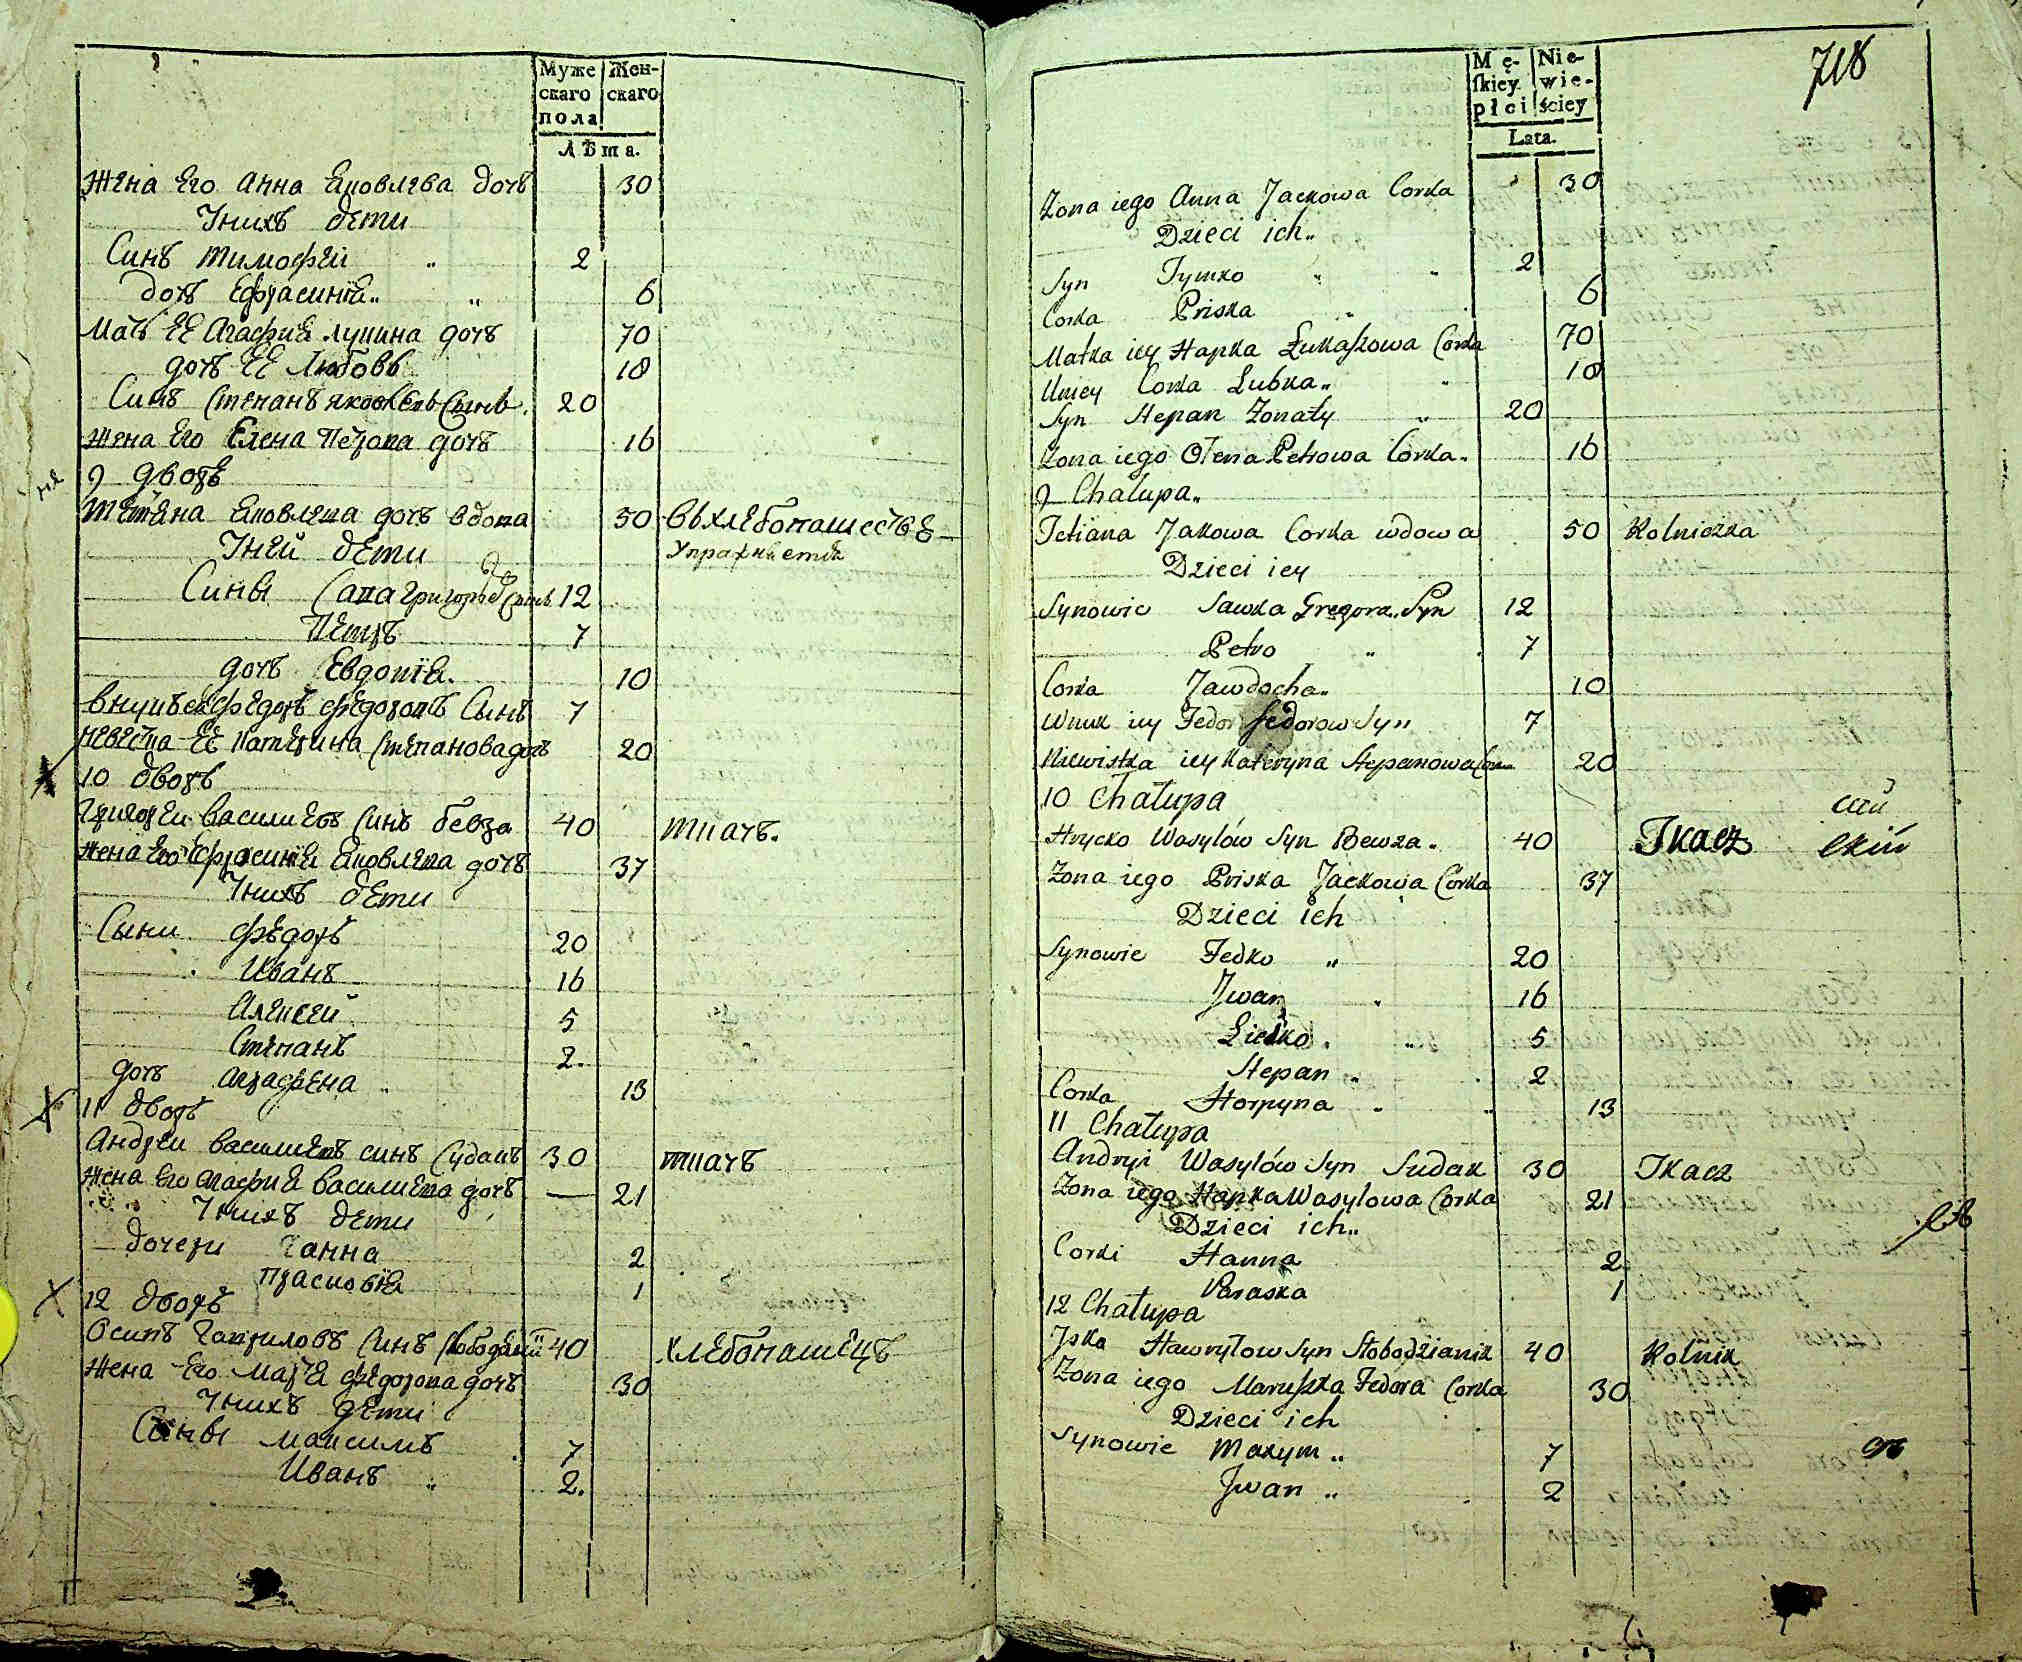 Муже Жен-
скаго скаго
пола
Лѣта.
Жена Его Анна Яковлева дочь 30
Унихъ дети
Синъ Тимофей 2
дочь Ефросинія 6
Мать ЕЕ Агафия лукина дочь 70
дочь ЕЕ Любовь 18
Синъ Степанъ яковлевъ Сынъ. 20
жена Его Елена Петрова дочь 16
9 дворъ
Тетяна Яковлева дочь вдова 50 въхлебопашестве
Уней дети Упражняется
Синвы Сава Григорьевъ Синъ 12
Петръ 7
дочь Евдокія. 10
внукъ ея Федоръ федоровъ Синъ 7
невестка ЕЕ Катерина Степанова дочь 20
10 дворъ
Григорей василиевъ Синъ бевза 40 ткачъ.
жена Его Ефросиния Яковлева дочь 37
Унихъ дети
Сыни федоръ 20
Иванъ 16
Алексей 5
Степанъ 2.
дочь аграфена 13
11 дворъ
Андрей василиевъ синъ Судакъ 30 ткачъ
Жена Его агафия василиева дочь 21
Унихъ дети
дочери ганна 2
прасковія 1
12 дворъ
Осипъ гавриловъ Синъ 40 хлебопашецъ
жена Его Марія федорова дочь 30
Унихъ дети
Синвы максимъ 7
Иванъ 2.
718
Mę- Nie-
skiey wie-
płci ściey
Lata.
Zona iego Anna Jackowa Corka 30
Dzieci ich..
Syn Tymko 2
Corka Priska 6
Matka iey Hapka Łukaszowa Corka 70
Umey Corka Lubka.. 18
Syn Stepan Zonaty 20
Zona iego Ołena Petrowa Corka. 16
9 Chałupa..
Tetiana Jakowa Corka wdowa 50 Rolniczka
Dzieci iey
Synowie Sawka Gregora Syn 12
Petro 7
Corka Jawdocha.. 10
Wnuk iey Fedor Fedorow Syn 7
Niewistka iey Kateryna Stepanowa 20
10 Chałupa
Hrycko Wasylów Syn Bewza. 40 Tkacz
Zona iego Priska Jackowa Corka 37
Dzieci ich
Synowie Fedko 20
Jwan 16
5
Stepan 2
Corka Horpyna 13
11 Chałupa
Andryi Wasylów Syn Sudak 30 Tkacz
Zona iego Hapka Wasylowa Corka 21
Dzieci ich..
Corki Hanna 2
Paraska 1
12 Chałupa
Jśka Hawryłow Syn Słobodzianik 40 Rolnik
Zona iego Maruszka Fedora Corka 30
Dzieci ich
Synowie Maxym .. 7
Jwan .. 2